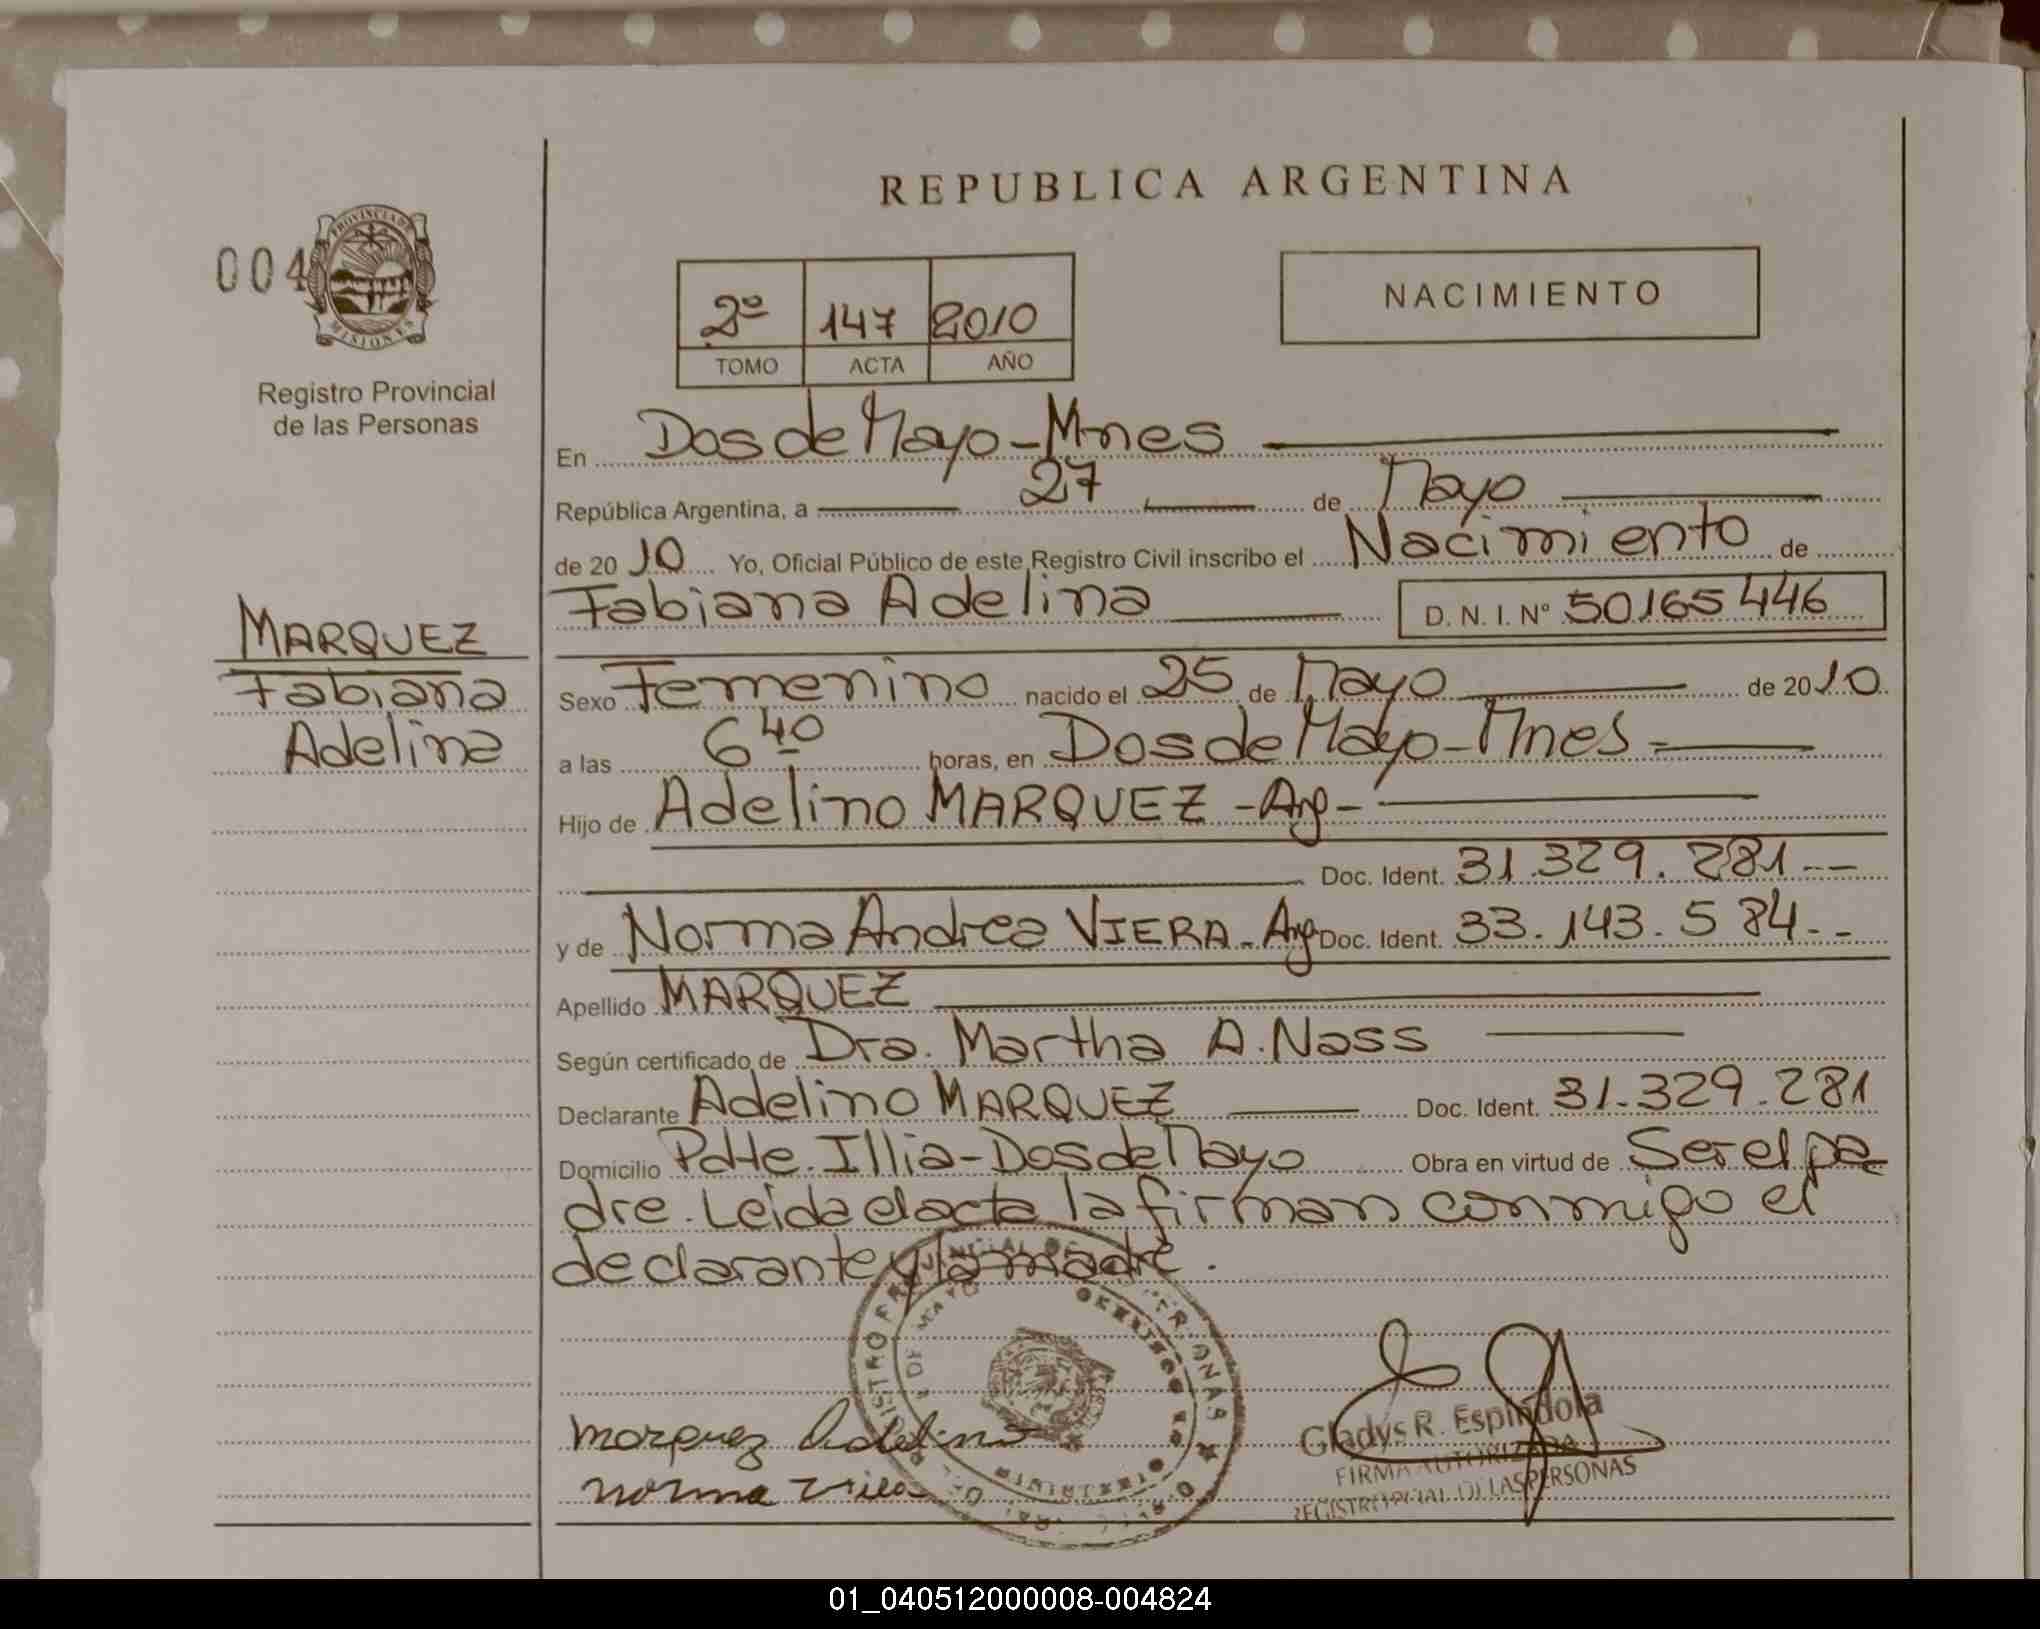 REPUBLICA ARGENTINA
004
PROVINCIA DE
MISIONES
Registro Provincial
de las Personas
2º 147 2010
TOMO ACTA AÑO
NACIMIENTO
En Dos de Mayo - Mnes
República Argentina, a 27 de Mayo
de 20 10 Yo, Oficial Público de este Registro Civil inscribo el Nacimiento de
Fabiana Adelina D. N. I. Nº 50165446
MARQUEZ
Fabiana
Adelina
Sexo Femenino nacido el 25 de Mayo de 20 10
a las 6 40 horas, en Dos de Mayo - Mnes -
Hijo de Adelino MARQUEZ - Arg -
Doc. Ident. 31.329.281 --
y de Norma Andrea VIERA - Arg Doc. Ident. 33.143.584 --
Apellido MARQUEZ
Según certificado de Dra. Martha A. Nass
Declarante Adelino MARQUEZ Doc. Ident. 31.329.281
Domicilio Pdte. Illia - Dos de Mayo Obra en virtud de Ser el pa
dre. Leida el acta la firman conmigo el
declarante y la madre.
Marquez Adelino
Norma Viera
Gladys R. Espindola
FIRMA AUTORIZADA
REGISTRO PCIAL DE LAS PERSONAS
01_040512000008-004824